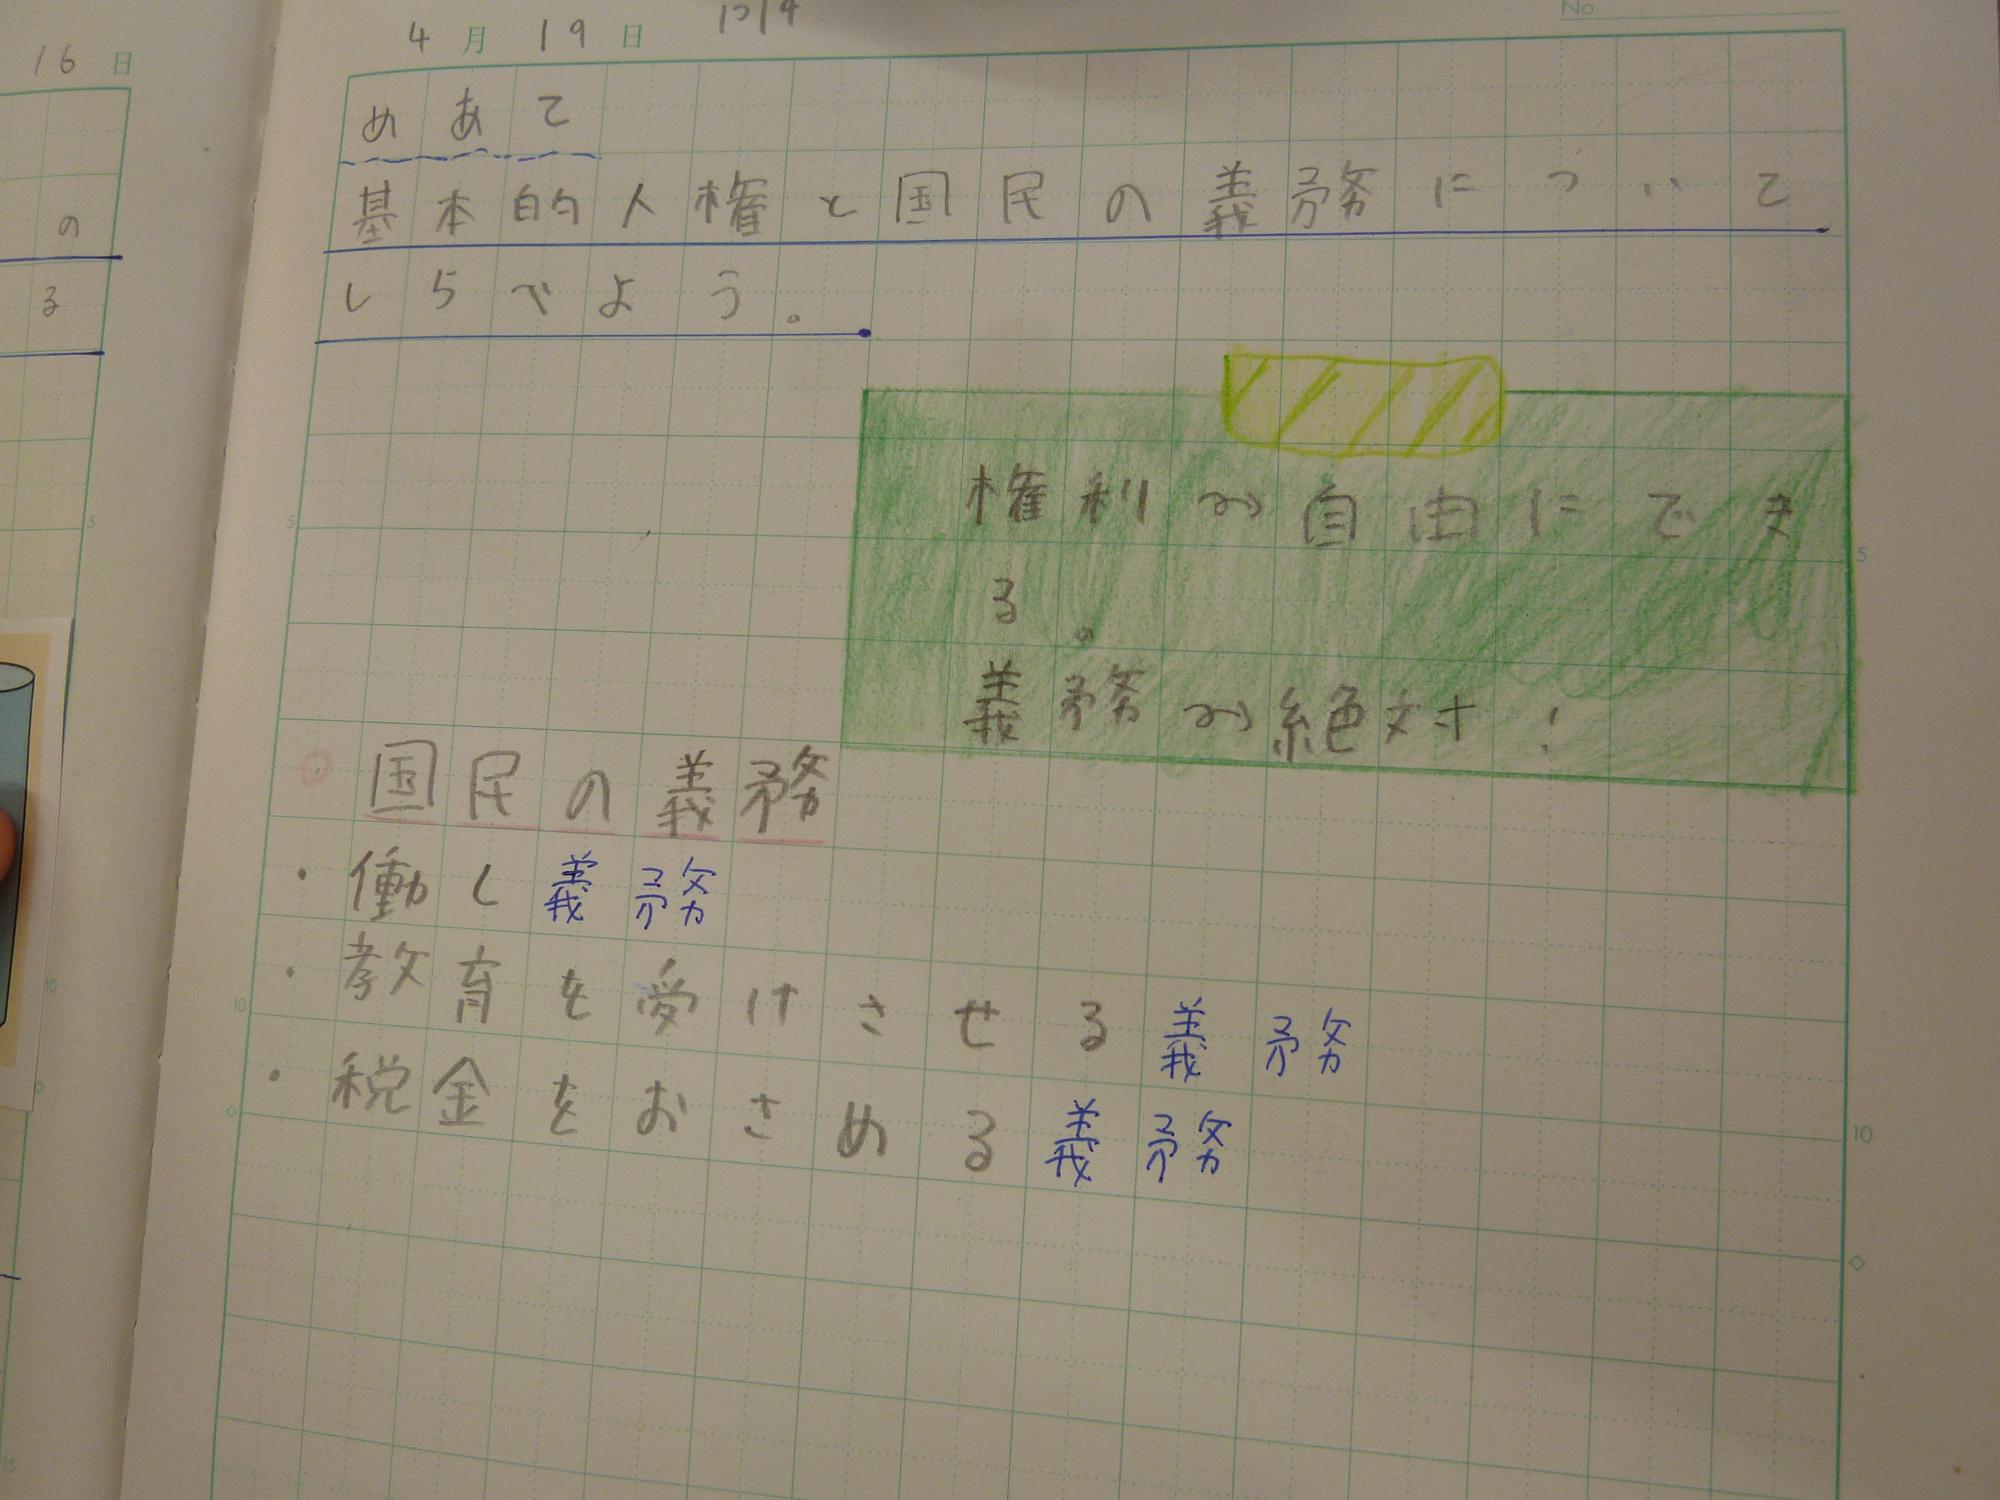 16日
の
る
4月19日
No.
めあて
基本的人権と国民の義務について
しらべよう。
権利→自由にでき
る。
義務→絶対!
国民の義務
・働く義務
・教育を受けさせる義務
・税金をおさめる義務
5
5
5
10
10
10
15